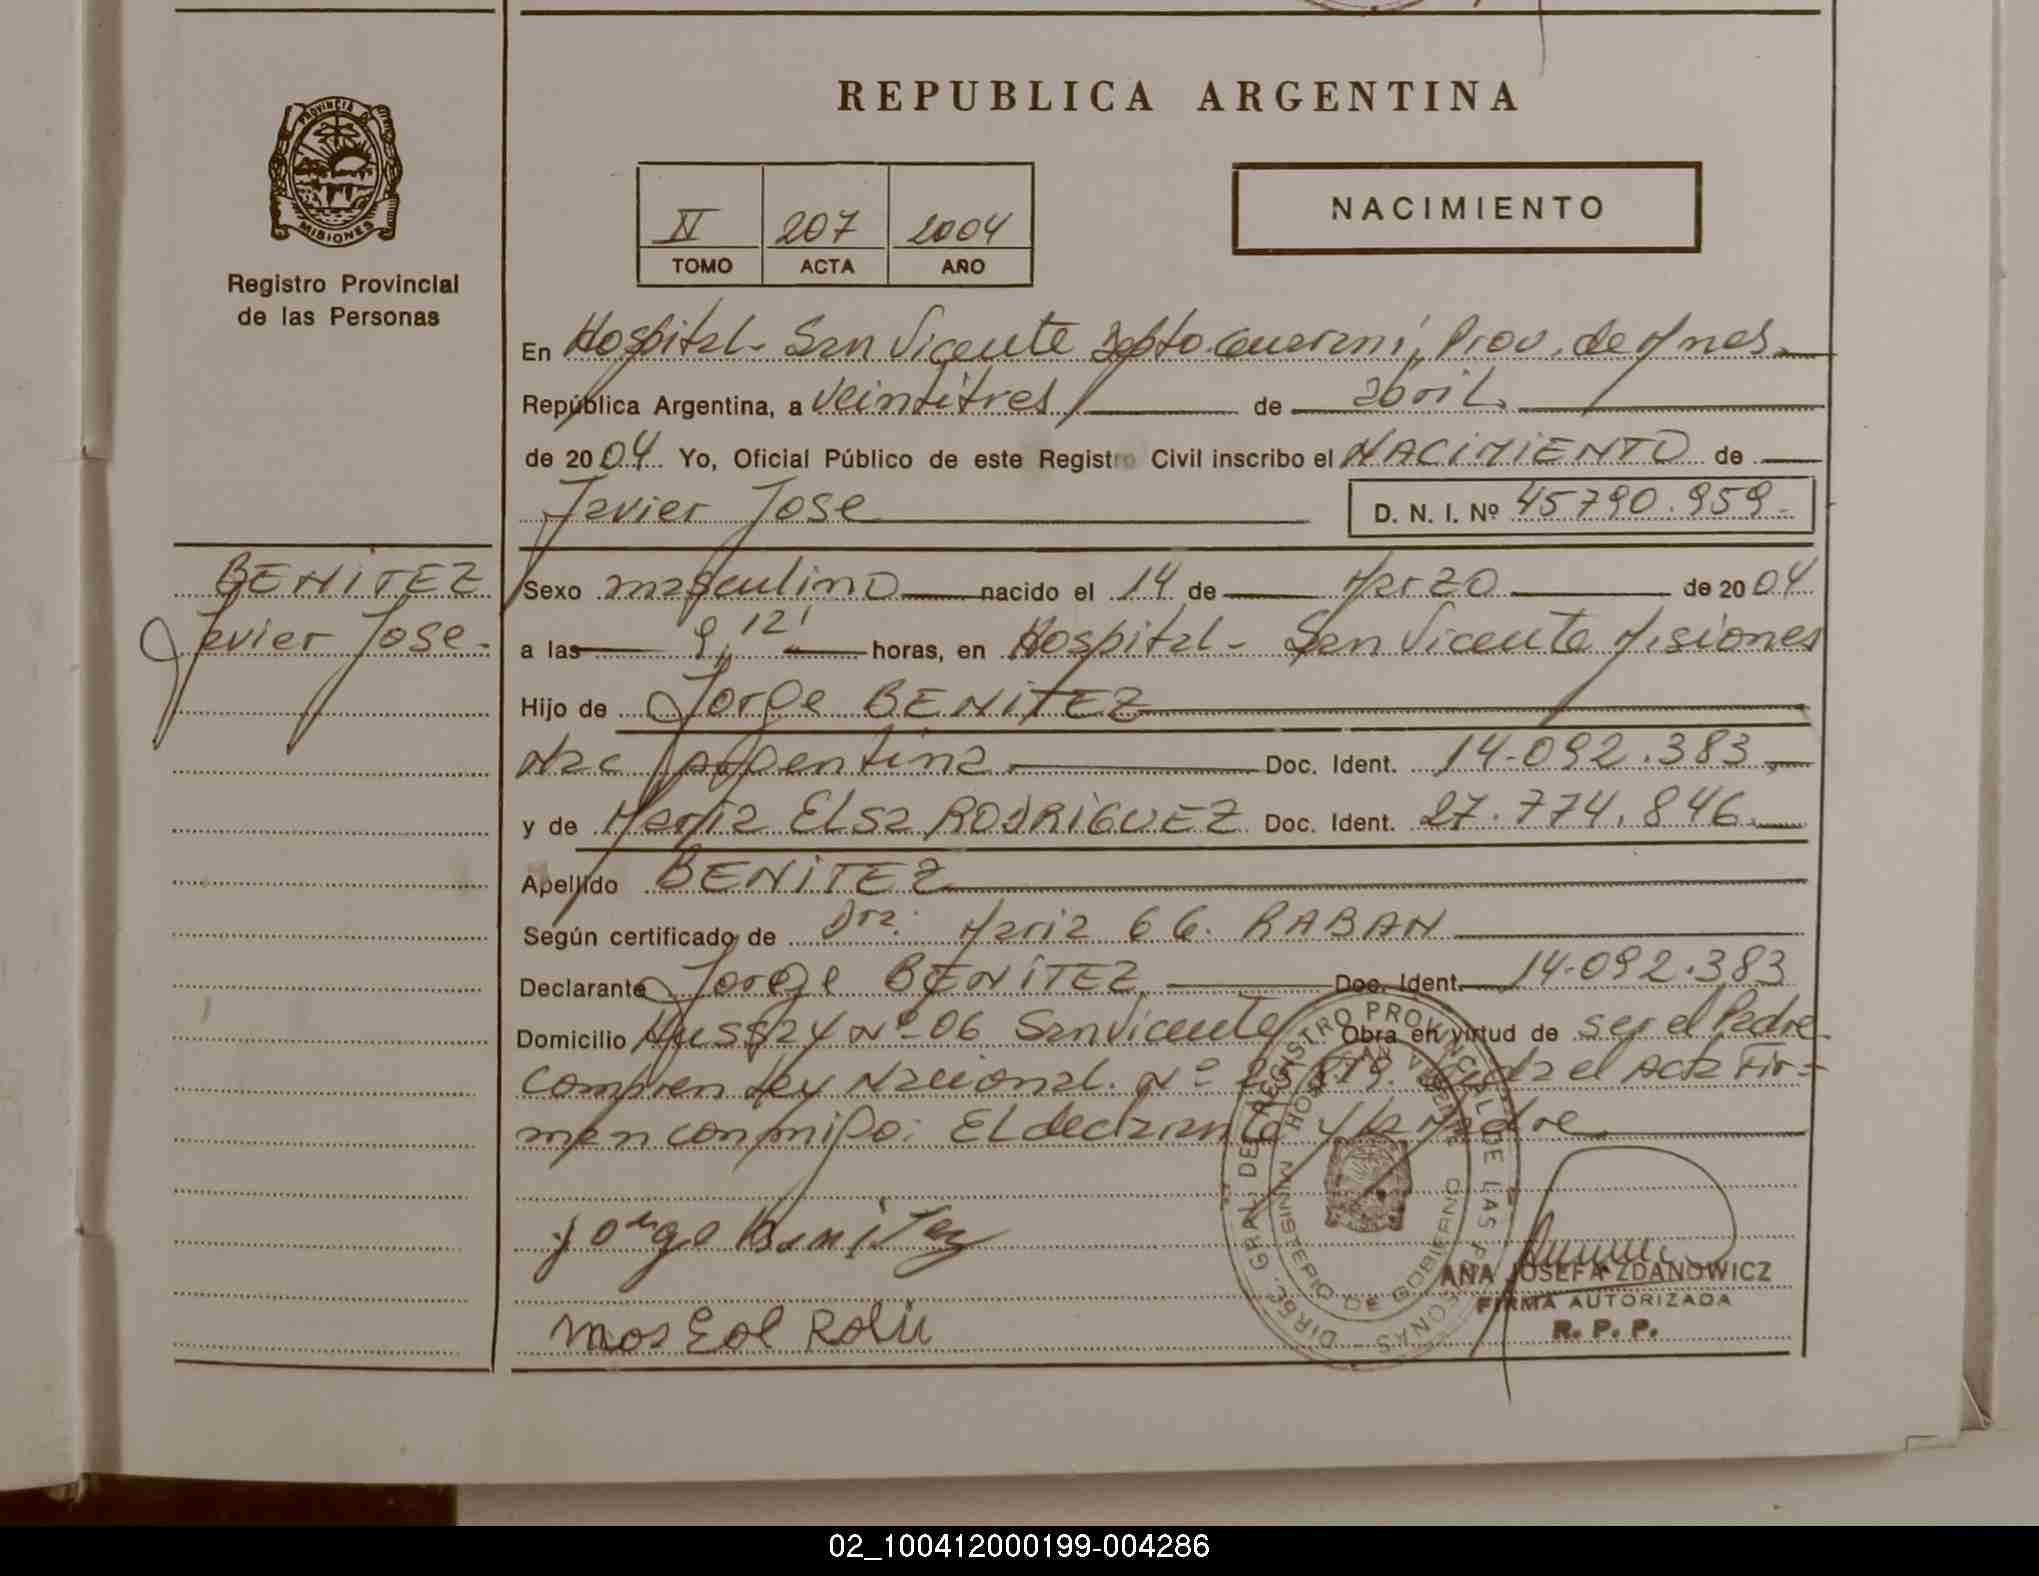 REPUBLICA ARGENTINA
PROVINCIA DE
MISIONES
Registro Provincial
de las Personas
II 207 2004
TOMO ACTA AÑO
NACIMIENTO
En Hospital - San Vicente Dpto. Guarani, Prov. de Mnes.
República Argentina, a veintitres de abril
de 2004 Yo, Oficial Público de este Registro Civil inscribo el NACIMIENTO de
Javier Jose D. N. I. Nº 45790.959-
BENITEZ
Javier Jose-
Sexo masculino nacido el 14 de Marzo de 2004
a las 9,12' horas, en Hospital - San Vicente Misiones
Hijo de Jorge BENITEZ
Nac Argentina Doc. Ident. 14.092.383
y de Maria Elsa RODRIGUEZ Doc. Ident. 27.774.846
Apellido BENITEZ
Según certificado de Dra. Maria G G. RABAN
Declarante Jorge BENITEZ Doc. Ident. 14.092.383
Domicilio Nº 06 San Vicente Obra en virtud de ser el Padre
Ley Nacional. Nº el Acta Fir-
man conmigo: El declarante y la Madre
Jorge Benitez
DIREC. GRAL. DEL REGISTRO PROVINCIAL DE LAS PERSONAS
MINISTERIO DE GOBIERNO
ANA JOSEFA ZDANOWICZ
FIRMA AUTORIZADA
R. P. P.
02_100412000199-004286